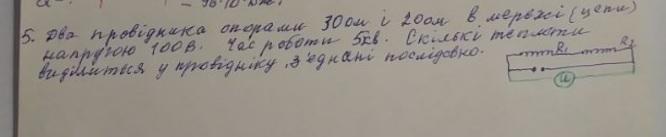 5. Два провідника опорами 30ом і 20ом в мережі (цепи)
напругою 100В. Час роботи 5хв. Скількі теплоти
виділиться у провідніку, з'еднані послідовно.
R₁ R₂
U